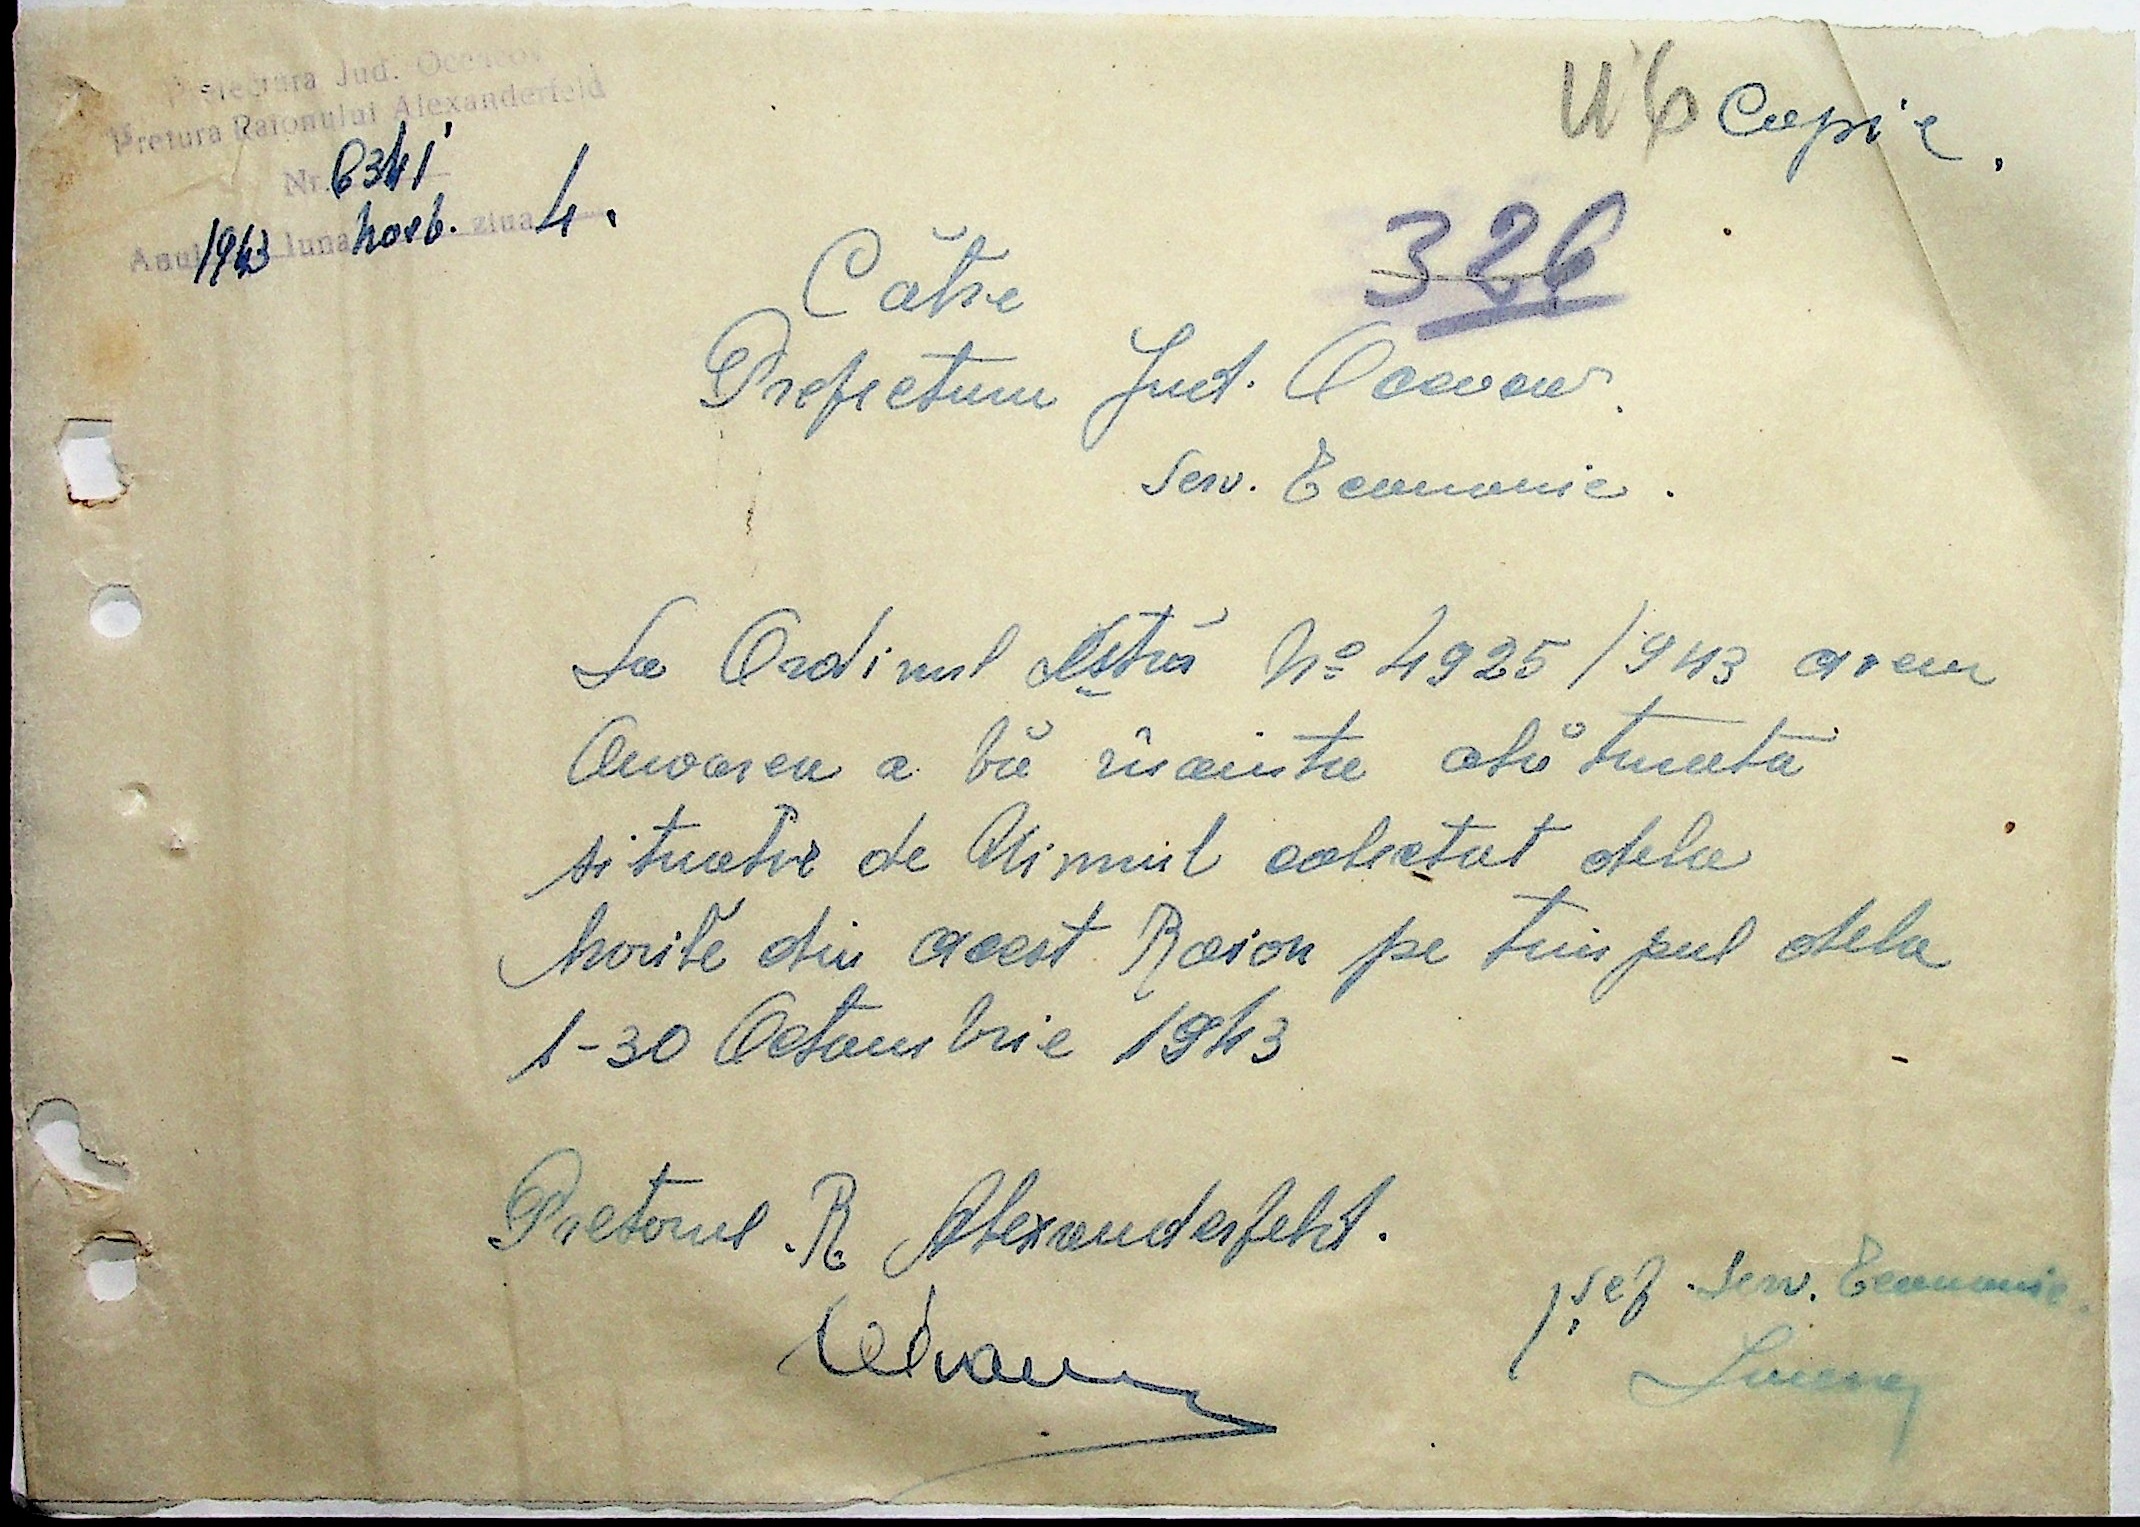 Prefectura Jud. Oceacov
Pretura Raionului Alexanderfeld
Nr. 6341
Anul 1943 luna Noeb. ziua 4.
Copie.
326
Către
Prefectura Jud. Oceacov.
Serv. Economic.
La Ordinul Dstră No 4925/943 avem
Onoarea a vă înainta alăturată
situație de Uiumul colectat dela
Morile din acest Raion pe timpul dela
1-30 Octombrie 1943
Pretorul R Alexanderfeld.
Șef Serv. Economic.